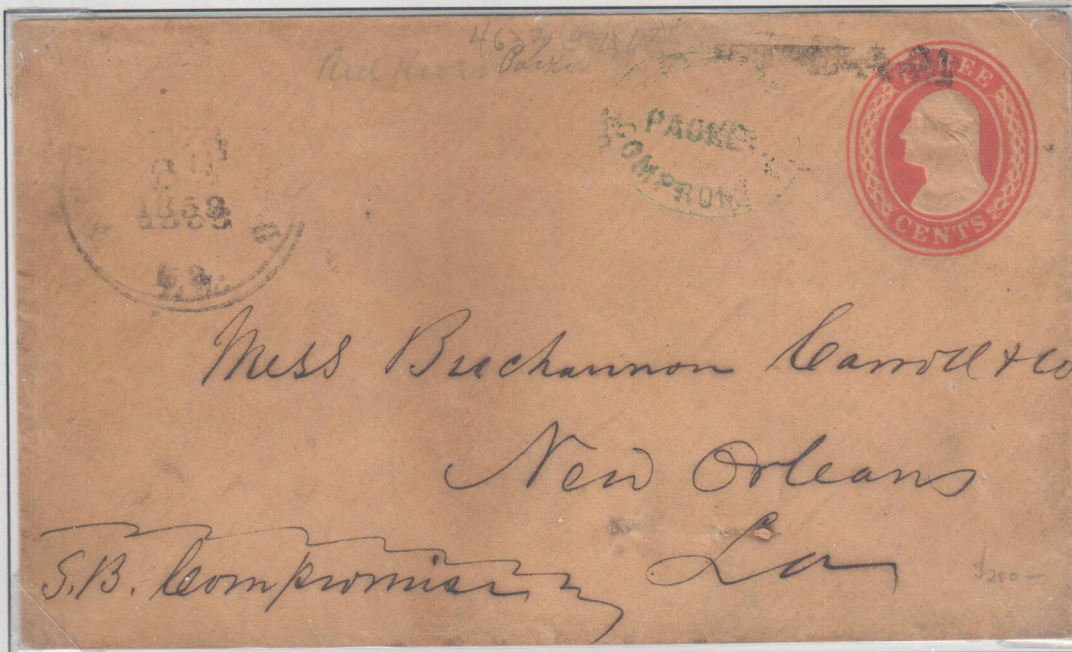 Red River Packet
PACKE
COMPROM
THREE
CENTS
1858
La
Mess Buchannon Carroll & Co
New Orleans
La
S.B. Compromise
$200-